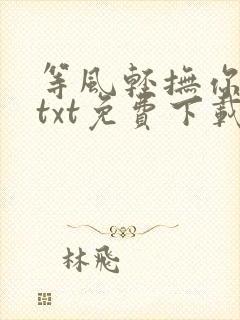 等風輕撫你
txt免費下載
林飛